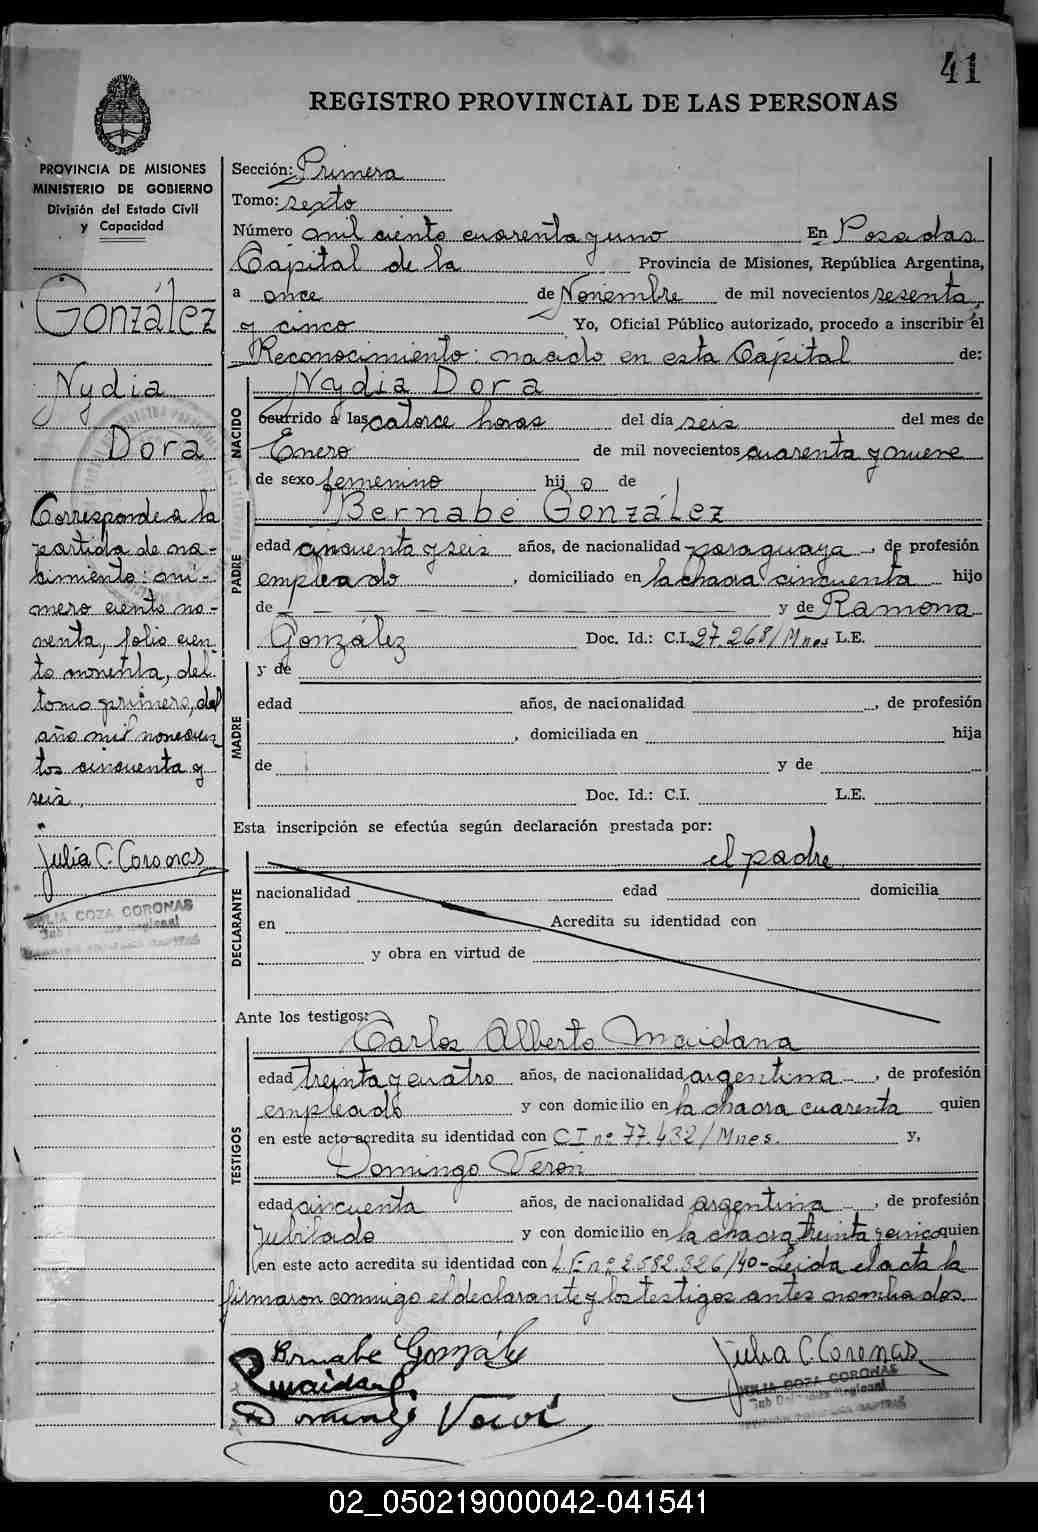 41
REGISTRO PROVINCIAL DE LAS PERSONAS
PROVINCIA DE MISIONES
MINISTERIO DE GOBIERNO
División del Estado Civil
y Capacidad
González
Nydia
Dora
Corresponde a la
partida de na-
cimiento: nú-
mero ciento no-
venta, folio cien-
to noventa, del
tomo primero, del
año mil novecien
tos cincuenta y
seis.
Julia C. Coronas
JULIA COZA CORONAS
Sección: Primera
Tomo: sexto
Número mil ciento cuarenta y uno En Posadas
Capital de la Provincia de Misiones, República Argentina,
a once de Noviembre de mil novecientos sesenta
y cinco Yo, Oficial Público autorizado, procedo a inscribir el
Reconocimiento: nacido en esta Capital de:
NACIDO
Nydia Dora
ocurrido a las catorce horas del día seis del mes de
Enero de mil novecientos cuarenta y nueve
de sexo femenino hij o de
PADRE
Bernabé González
edad cincuenta y seis años, de nacionalidad paraguaya, de profesión
empleado, domiciliado en la chacra cincuenta hijo
de y de Ramona
González Doc. Id.: C.I. 27.268/Mnes L.E.
MADRE
y de
edad años, de nacionalidad , de profesión
, domiciliada en hija
de y de
Doc. Id.: C.I. L.E.
Esta inscripción se efectúa según declaración prestada por:
DECLARANTE
el padre
nacionalidad edad domicilia
en Acredita su identidad con
y obra en virtud de
Ante los testigos:
TESTIGOS
Carlos Alberto Maidana
edad treinta y cuatro años, de nacionalidad argentina, de profesión
empleado y con domicilio en la chacra cuarenta quien
en este acto acredita su identidad con C I nº 77.432/Mnes. y,
Domingo Veron
edad cincuenta años, de nacionalidad argentina, de profesión
Jubilado y con domicilio en la chacra treinta y cinco quien
en este acto acredita su identidad con L.E. nº 2.582.326/40- Leida el acta la
firmaron conmigo el declarante y los testigos antes nombrados.
Bernabe González
Julia C. Coronas
Maidana
JULIA COZA CORONAS
Sub Delegada Regional
Domingo Veron
02_050219000042-041541